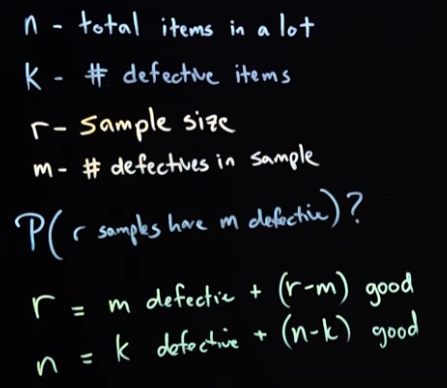 n - total items in a lot
k - # defective items
r - sample size
m - # defectives in sample
P( r samples have m defective)?
r = m defective + (r-m) good
n = k defective + (n-k) good